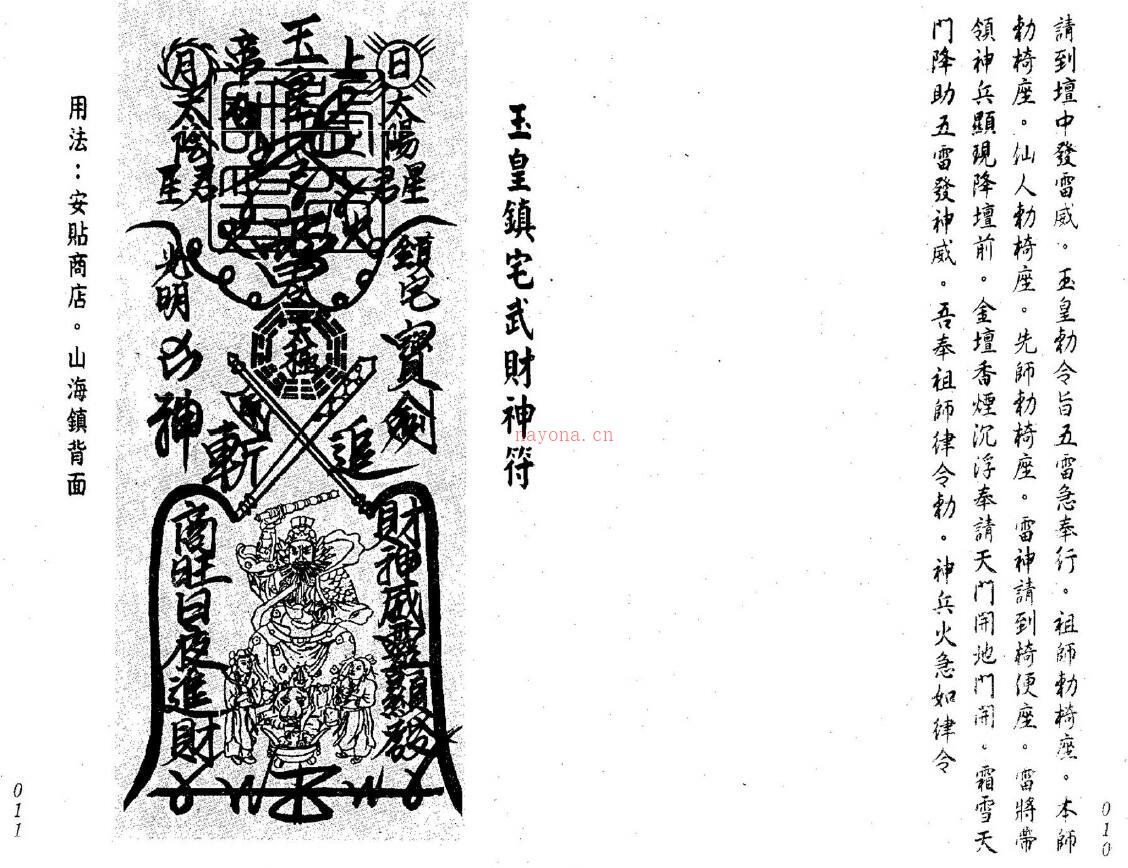 請到壇中發雷威。玉皇勅令旨五雷急奉行。祖師勅椅座。本師
勅椅座。仙人勅椅座。先師勅椅座。雷神請到椅便座。雷將帶
領神兵顯現降壇前。金壇香煙沉浮奉請天門開地門開。霜雪天
門降助五雷發神威。吾奉祖師律令勅。神兵火急如律令
010
玉皇鎮宅武財神符
日
太陽星君
上
玉皇
帝
月
太陰星君
鎮宅寶劍
追
太極
斬
光明
凶神
財神威靈顯
商旺日夜進財
用法：安貼商店。山海鎮背面
011
nayona.cn